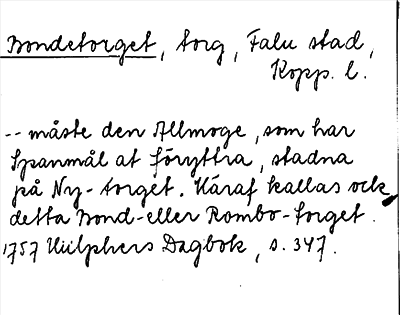 Bondetorget, torg, Falu stad,
Kopp. l.
-- måste den Allmoge, som har
Spanmål at föryttra, stadna
på Ny-torget. Häraf kallas ock
detta Bond- eller Rombo-torget.
1757 Hülphers Dagbok, s. 347.